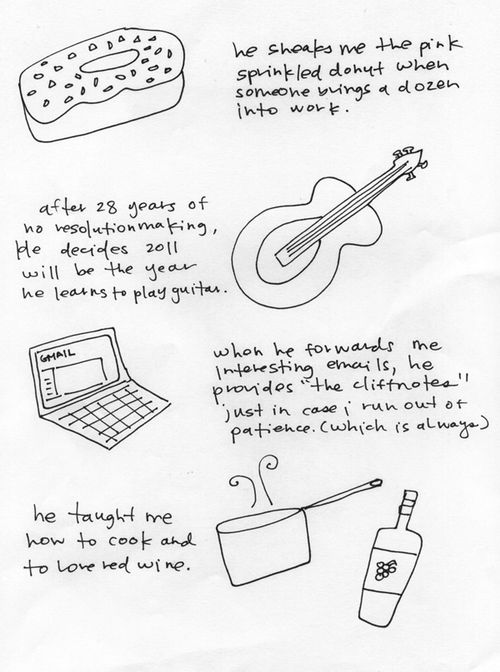 he sneaks me the pink
sprinkled donut when
someone brings a dozen
into work.
after 28 years of
no resolutionmaking,
he decides 2011
will be the year
he learns to play guitar.
GMAIL
when he forwards me
interesting emails, he
provides "the cliftnotes"
just in case i run out of
patience. (which is always)
he taught me
how to cook and
to love red wine.